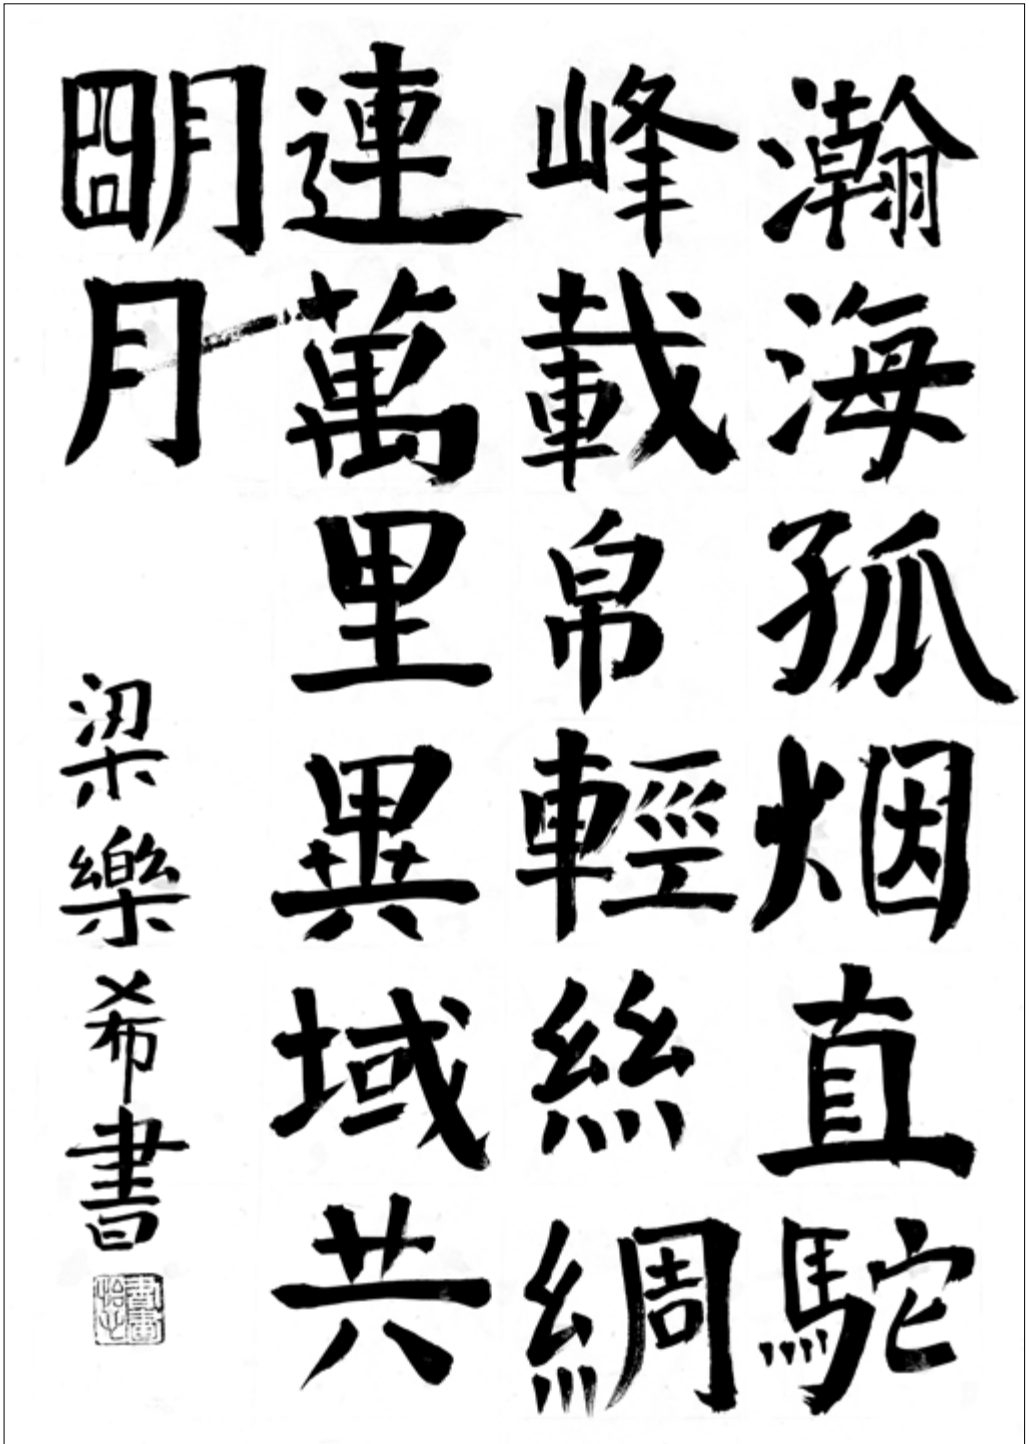 瀚海孤烟直駝
峰載帛輕絲綢
連萬里異域共
朙月
梁樂希書